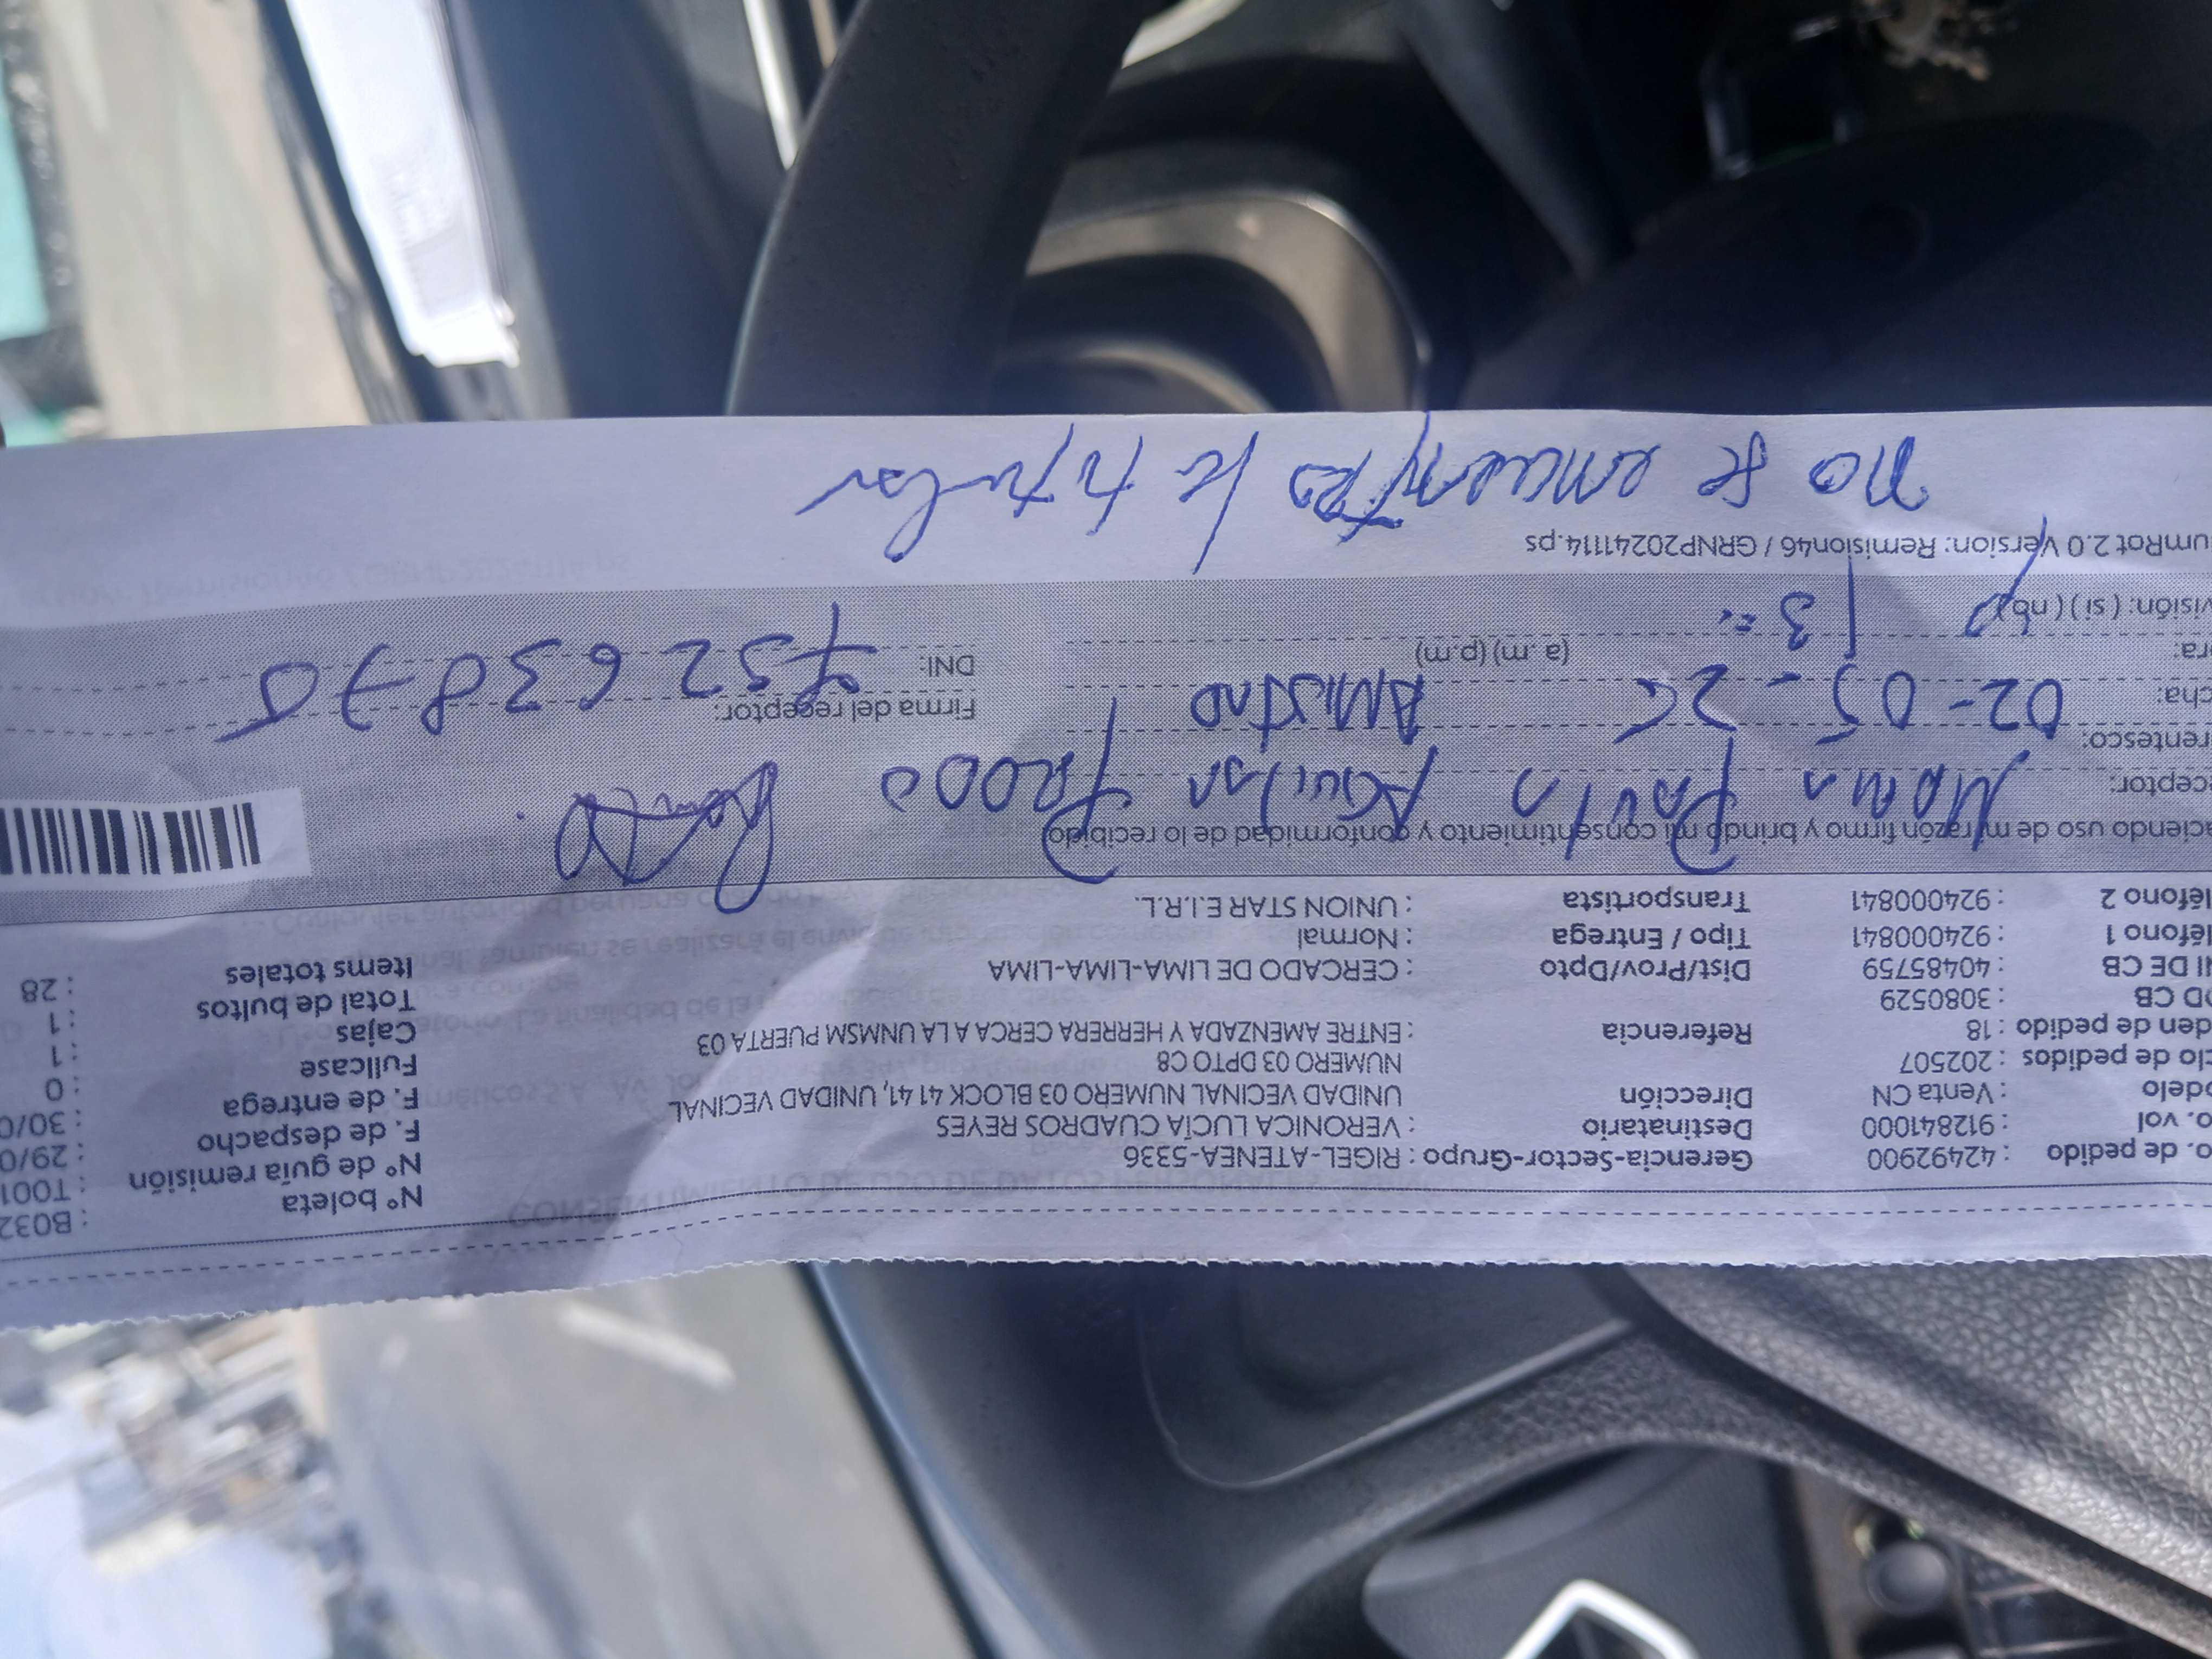 Nº boleta : B032
o. de pedido : 42492900 Gerencia-Sector-Grupo : RIGEL-ATENEA-5336 Nº de guía remisión : T001
o. vol : 912841000 Destinatario : VERONICA LUCÍA CUADROS REYES F. de despacho : 29/0
odelo : Venta CN Dirección UNIDAD VECINAL NUMERO 03 BLOCK 41 41, UNIDAD VECINAL F. de entrega : 30/0
clo de pedidos : 202507 NUMERO 03 DPTO C8 Fullcase : 0
den de pedido : 18 Referencia : ENTRE AMENZADA Y HERRERA CERCA A LA UNMSM PUERTA 03 Cajas : 1
OD CB : 3080529 Total de bultos : 1
NI DE CB : 40485759 Dist/Prov/Dpto : CERCADO DE LIMA-LIMA-LIMA Items totales : 28
léfono 1 : 924000841 Tipo / Entrega : Normal
léfono 2 : 924000841 Transportista : UNION STAR E.I.R.L.
aciendo uso de mi razón firmo y brindo mi consentimiento y conformidad de lo recibido
ceptor: Paula Aguilar
rentesco: Firma del receptor:
cha: 02-05-2 Amistad
ora: (a.m) (p.m) DNI:
visión: ( si ) ( no ) 13
umRot 2.0 Versión: Remision46 / GRNP20241114.ps
no se encuentra la titular